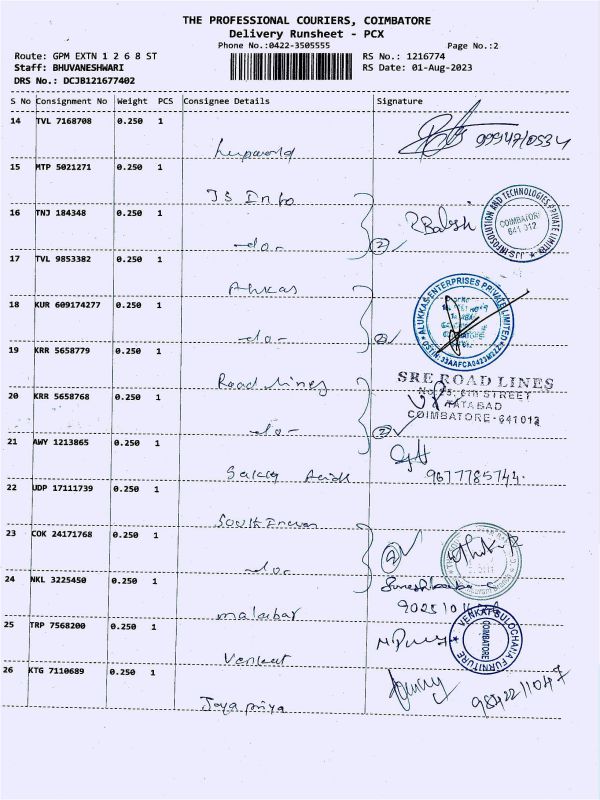 THE PROFESSIONAL COURIERS, COIMBATORE
Delivery Runsheet - PCX
Phone No.:0422-3505555 Page No.:2
Route: GPM EXTN 1 2 6 8 ST RS No.: 1216774
Staff: BHUVANESHWARI RS Date: 01-Aug-2023
DRS No.: DCJB121677402
S No Consignment No Weight PCS Consignee Details Signature
14 TVL 7168708 0.250 1
15 MTP 5021271 0.250 1
JS Info
16 TNJ 184348 0.250 1
R Balaji
JJS INFOSOLUTION AND TECHNOLOGIES PRIVATE LIMITED
COIMBATORE
641 012
-do- 2
17 TVL 9853382 0.250 1
18 KUR 609174277 0.250 1
ALUKKAS ENTERPRISES PRIVATE LIMITED
-do- 2
19 KRR 5658779 0.250 1
Road lines
SRE ROAD LINES
20 KRR 5658768 0.250 1
6TH STREET
TATABAD
COIMBATORE-641012
-do- 2
21 AWY 1213865 0.250 1
9677785744
22 UDP 17111739 0.250 1
23 COK 24171768 0.250 1
-do- 2
24 NKL 3225450 0.250 1
malabar
25 TRP 7568200 0.250 1
VENKAT SULOCHANA FURNITURE
COIMBATORE
Venkat
26 KTG 7110689 0.250 1
Jaya priya